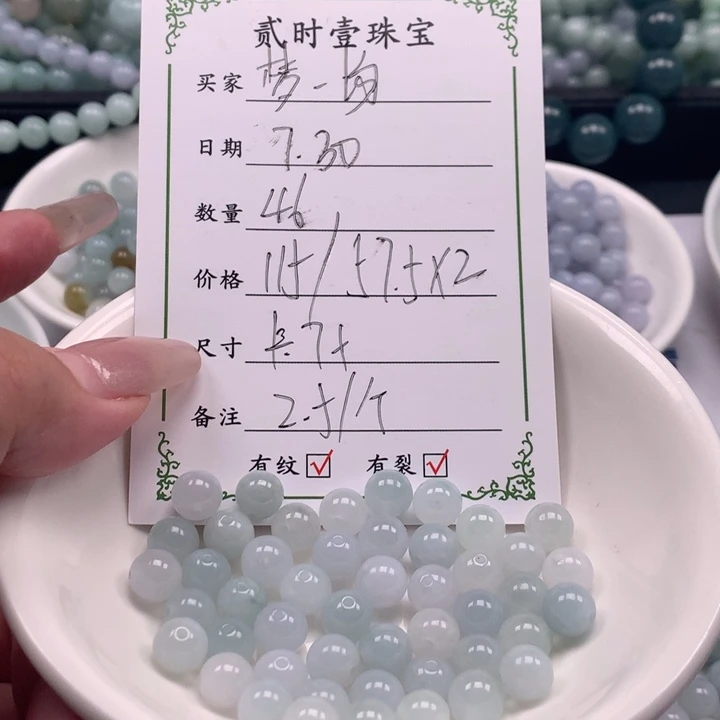 贰时壹珠宝
买家 梦一场
日期 7.30
数量 46
价格 115/57.5X2
尺寸 长7+
备注 2.5/个
有纹 ☑ 有裂 ☑